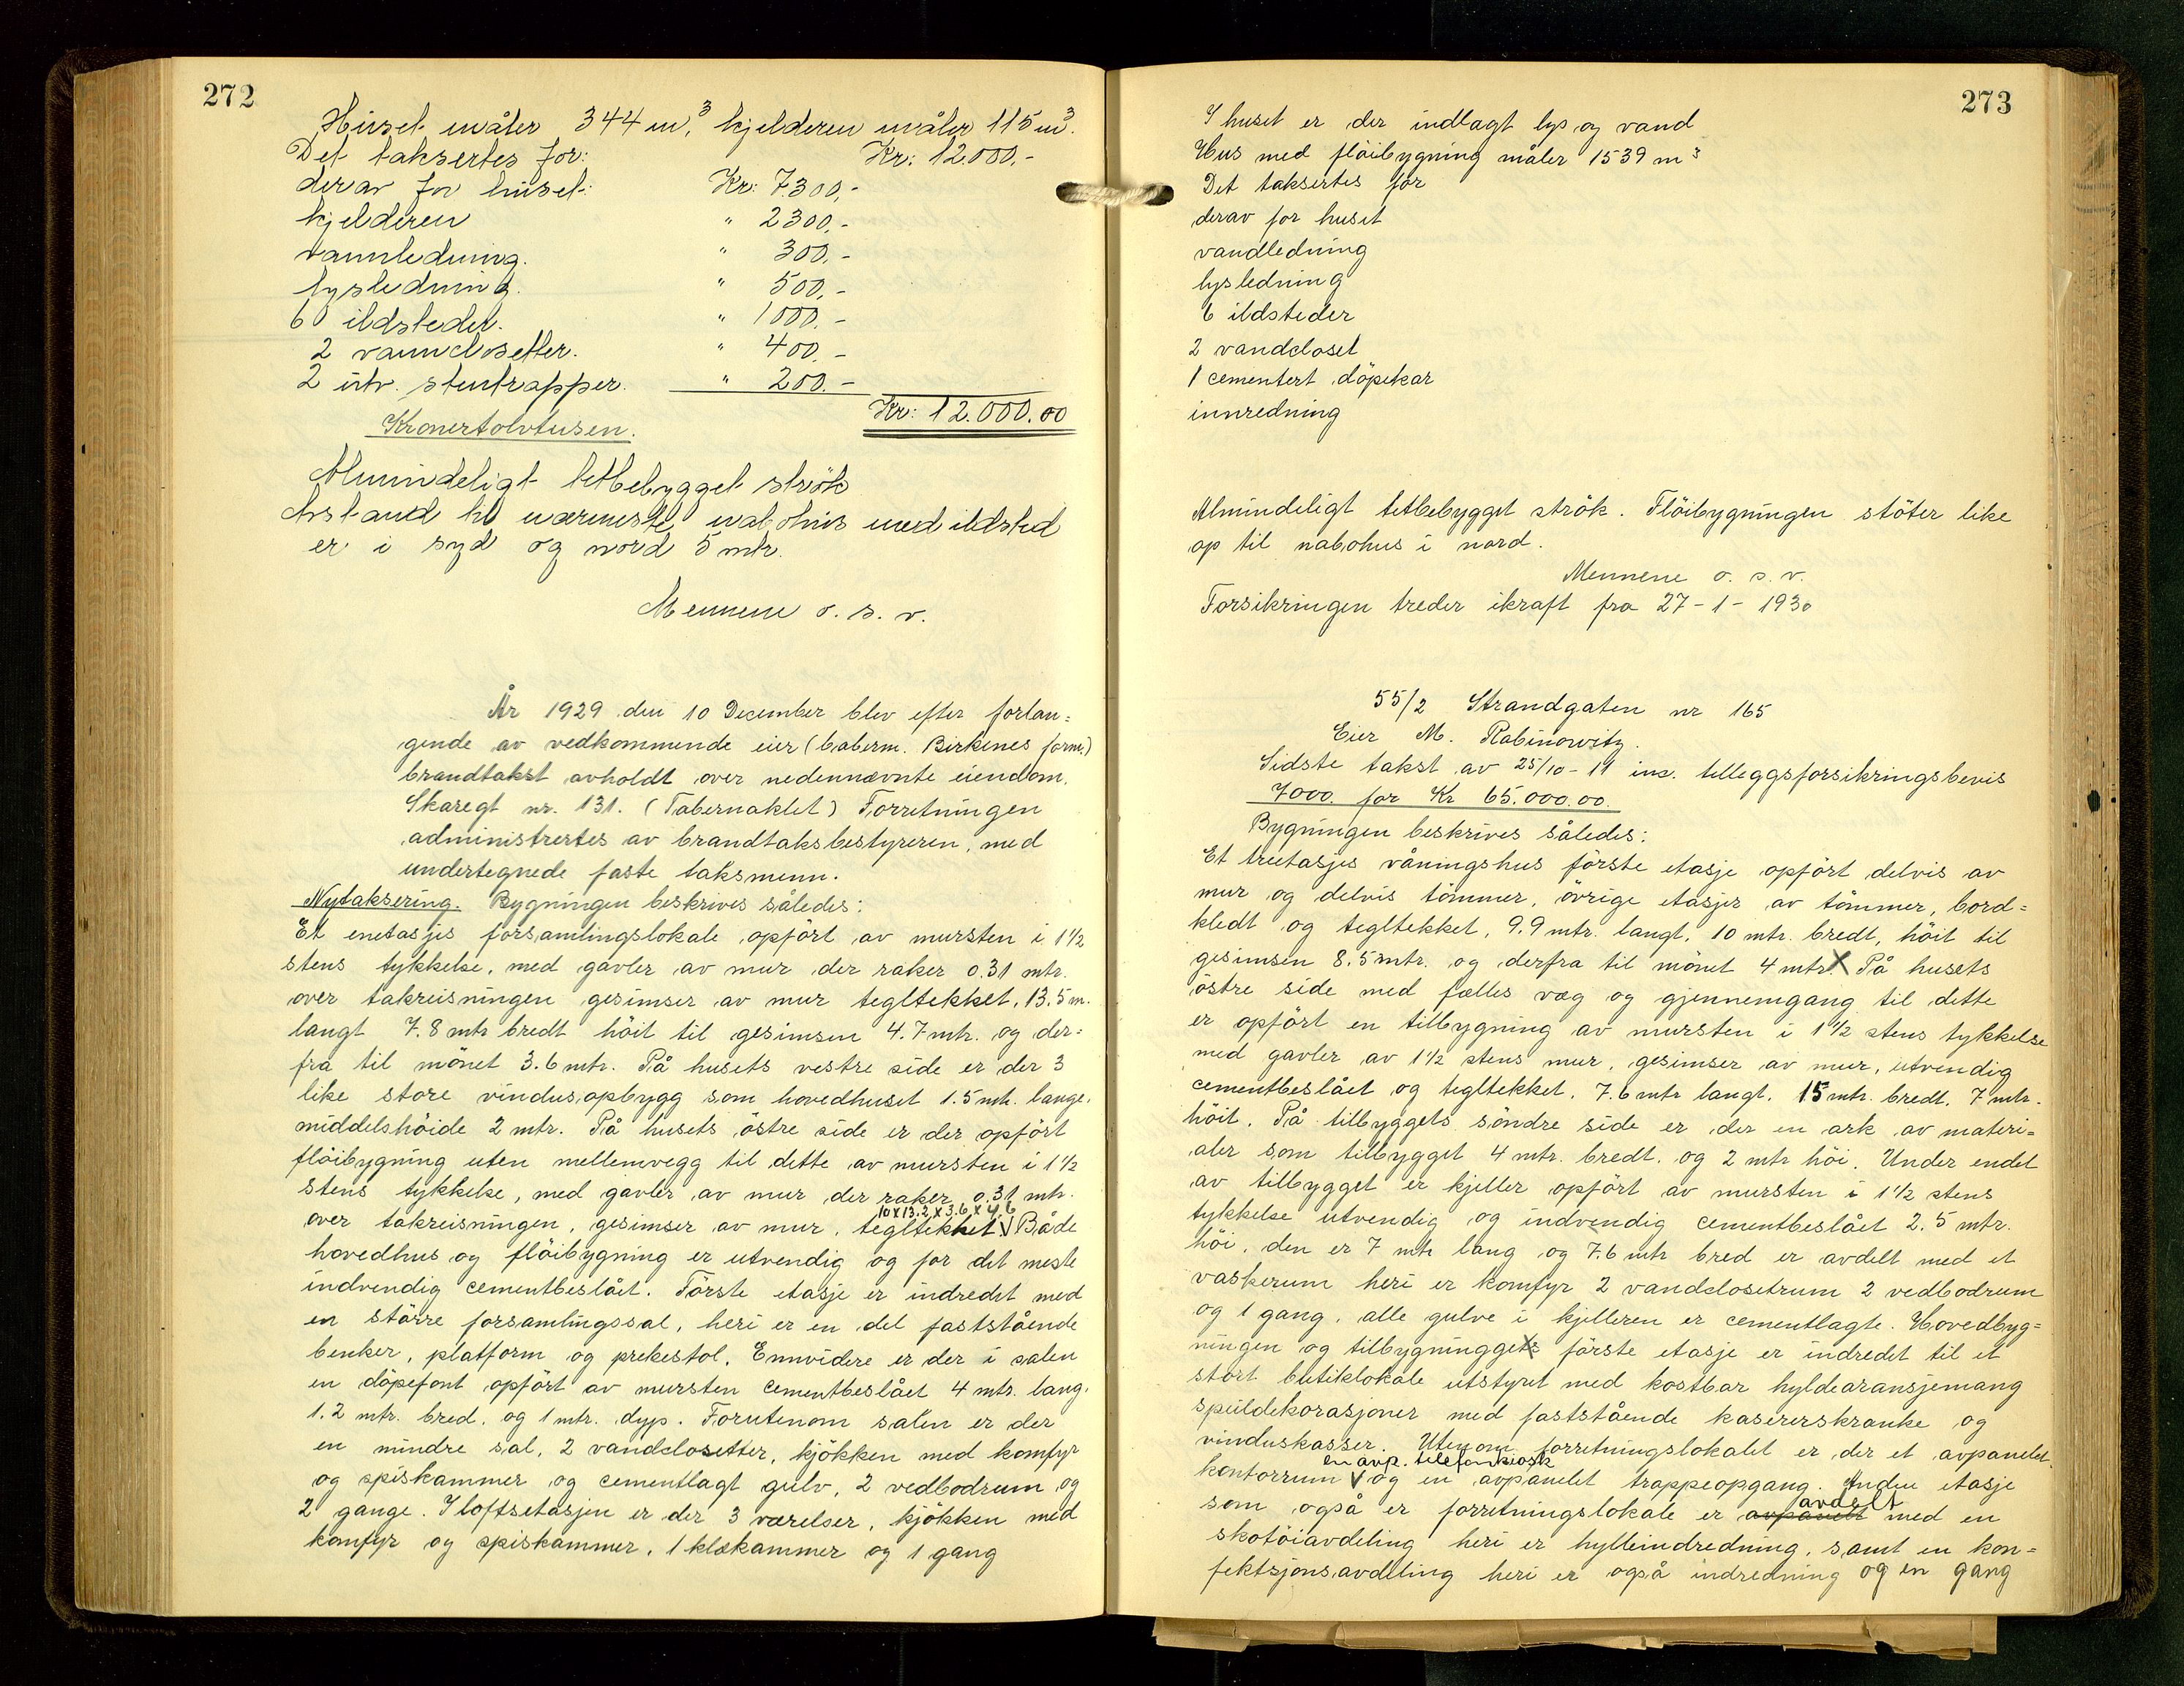 272
Huset måler 344 m,³ kjelderen måler 115 m³.
Det taksertes for: Kr: 12.000,-
derav for huset: Kr: 7300,-
kjelderen " 2300,-
vannledning. " 300,-
lysledning. " 500,-
6 ildsteder. " 1000,-
2 vannclosetter. " 400,-
2 utv. stentrapper. " 200,-
Kr: 12.000.00
Kronertolvtusen.
Almindeligt tetbebygget strök
Avstand til nærmeste nabohus med ildsted
er i syd og nord 5 mtr.
Mennene o. s. v.
År 1929 den 10 December blev efter forlan=
gende av vedkommende eier (Baberm. Birkenes form.)
brandtakst avholdt over nedennævnte eiendom.
Skaregt nr. 131. (Tabernaklet) Forretningen
administrertes av brandtaksbestyreren, med
undertegnede faste taksmenn.
Nytaksering. Bygningen beskrives således:
Et enetasjes forsamlingslokale opfört av mursten i 1½
stens tykkelse, med gavler av mur der raker 0.31 mtr.
over takreisningen gesimser av mur tegltekket, 13.5 m.
langt 7.8 mtr bredt höit til gesimsen 4.7 mtr. og der=
fra til mönet 3.6 mtr. På husets vestre side er der 3
like store vindusopbygg som hovedhuset 1.5 mtr. lange,
middelshöide 2 mtr. På husets östre side er der opfört
flöibygning uten mellemvegg til dette av mursten i 1½
stens tykkelse, med gavler av mur der raker 0.31 mtr.
10 x 13.2 x 3.6 x 4.6
over takreisningen, gesimser av mur, tegltekket. V Både
hovedhus og flöibygning er utvendig og for det meste
indvendig cementbeslået. Förste etasje er indredet med
en större forsamlingssal, heri er en del faststående
benker, platform og prekestol. Ennvidere er der i salen
en döpefont opfört av mursten cementbeslået 4 mtr. lang,
1.2 mtr. bred, og 1 mtr. dyp. Forutenom salen er der
en mindre sal, 2 vandclosetter, kjökken med komfyr
og spiskammer og cementlagt gulv, 2 vedbodrum og
2 gange. I loftsetasjen er der 3 værelser, kjökken med
komfyr og spiskammer, 1 klækammer og 1 gang
273
I huset er der indlagt lys og vand
Hus med flöibygning måler 1539 m³
Det taksertes for
derav for huset
vandledning
lysledning
6 ildsteder
2 vandcloset
1 cementert döpekar
innredning
Almindeligt tetbebygget strök. Flöibygningen stöter like
op til nabohus i nord.
Mennene o. s. v.
Forsikringen treder ikraft fra 27-1-1930
55/2 Strandgaten nr 165
Eier M. Rabinowitz.
Sidste takst av 25/10-11 inc. tilleggsforsikringsbevis
7000 for Kr 65.000.00.
Bygningen beskrives således:
Et treetasjes våningshus förste etasje opfört delvis av
mur og delvis tömmer, övrige etasjer av tömmer, bord=
kledt og tegltekket, 9.9 mtr. langt, 10 mtr. bredt, höit til
gesimsen 8.5 mtr. og derfra til mönet 4 mtr. X På husets
östre side med fælles væg og gjennemgang til dette
er opfört en tilbygning av mursten i 1½ stens tykkelse
med gavler av 1½ stens mur, gesimser av mur, utvendig
cementbeslået og tegltekket. 7.6 mtr langt. 15 mtr. bredt. 7 mtr.
höit. På tilbyggets söndre side er der en ark av materi=
aler som tilbygget 4 mtr. bredt. og 2 mtr höi. Under endel
av tilbygget er kjeller opfört av mursten i 1½ stens
tykkelse utvendig og indvendig cementbeslået 2.5 mtr.
höi, den er 7 mtr lang og 7.6 mtr bred er avdelt med et
vaskerum heri er komfyr 2 vandclosetrum 2 vedbodrum
og 1 gang, alle gulve i kjelleren er cementlagte. Hovedbyg=
ningen og tilbygningets förste etasje er indredet til et
stört butiklokale utstyret med kostbar hyldearansjemang
speildekorasjoner med faststående kasererskranke og
vinduskasser. Utenom forretningslokalet er der et avpanelet
en avp. telefonkiosk
kontorrum V og en avpanelet trappeopgang. Anden etasje
avdelt
som også er forretningslokale er avpanelt med en
skotöiavdeling heri er hylleindredning, samt en kon=
fektsjonsavdeling heri er også indredning og en gang